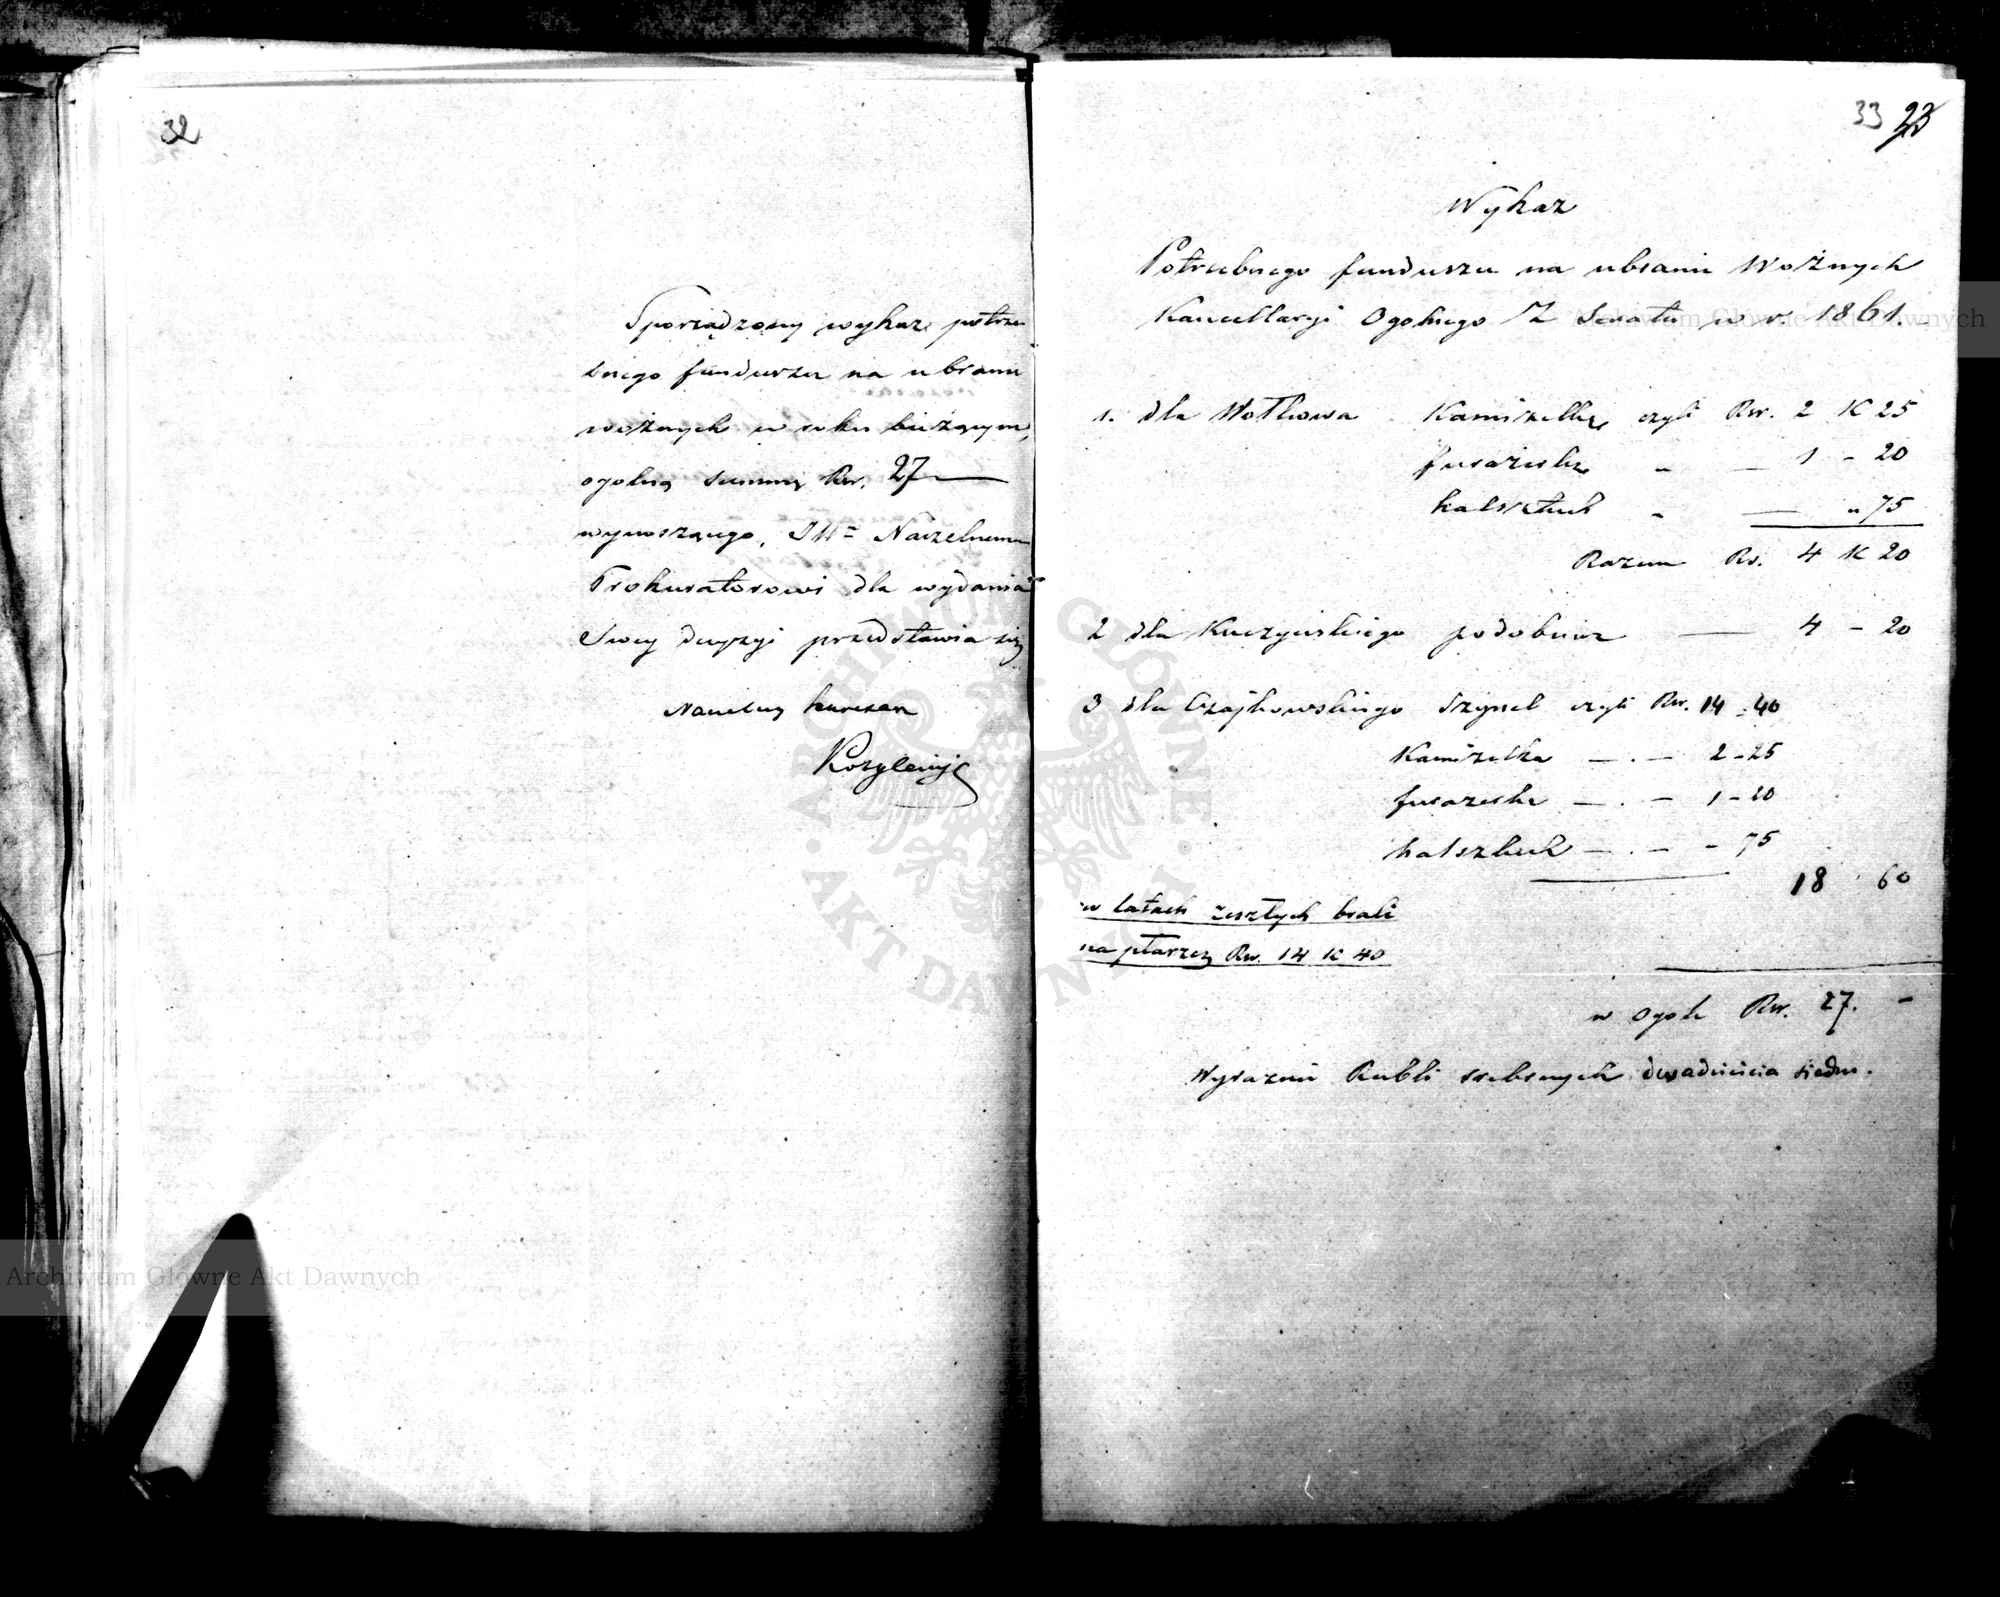 32
Sporządzony wykaz potrze
bnego funduszu na ubranie
woźnych w roku bieżącym,
ogolną summę Rsr. 27
wynoszącego, JW= Naczelnemu
Prokuratorowi dla wydania
Swey decyzyi przedstawia się
Naczelny
33 23
Wykaz
Potrzebnego funduszu na ubranie Woźnych
Kancellaryi Ogolnego Z Senatu w r. 1861.
1. dla Wołkowa Kamizelkę czyli Rsr. 2 K 25
furażerkę " — 1 - 20
halsztuch " — " 75
Razem Rs. 4 K 20
2 dla Kuczyńskiego podobnie — 4 - 20
3 dla Czajkowskiego Szynel czyli Rsr. 14 - 40
Kamizelka — . — 2 - 25
furażerka — . — 1 - 20
halsztuch — . — - 75
18 60
w latach zeszłych brali
na płaszcz Rsr. 14 K 40
w ogole Rsr. 27. -
Wyraźnie Rubli srebrnych dwadzieścia siedm.
Archiwum Główne Akt Dawnych
Archiwum Główne Akt Dawnych
ARCHIWUM GŁÓWNE AKT DAWNYCH